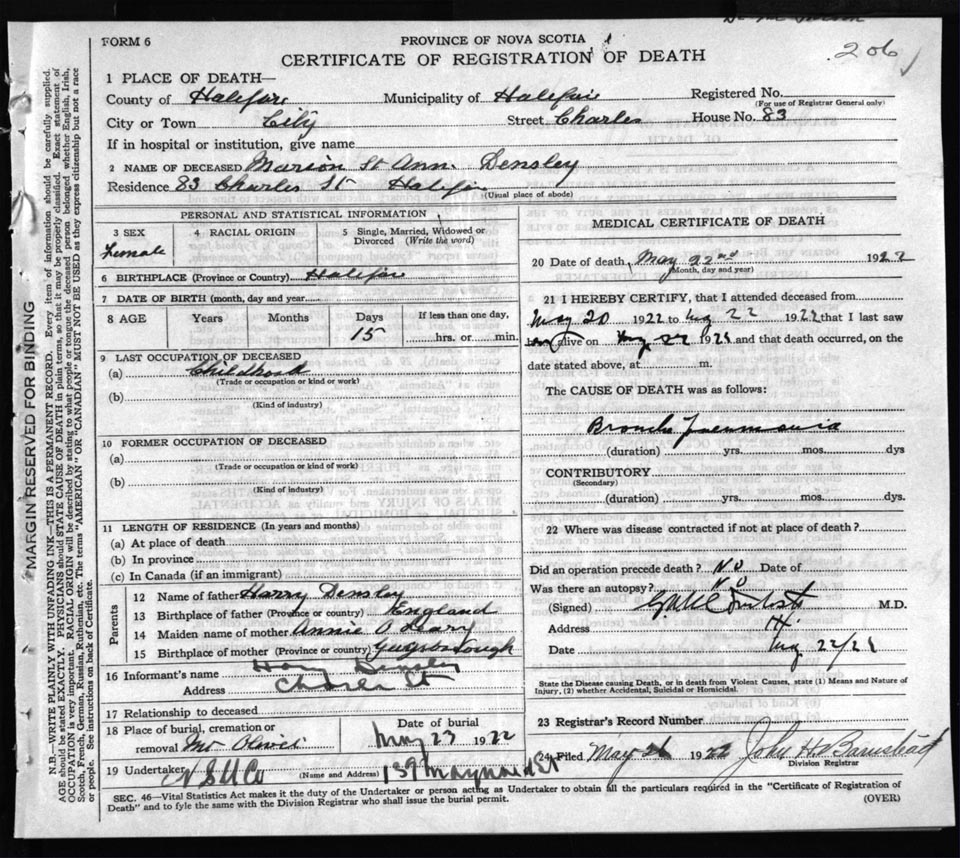 FORM 6
PROVINCE OF NOVA SCOTIA
CERTIFICATE OF REGISTRATION OF DEATH
206
1 PLACE OF DEATH—
County of Halifax Municipality of Halifax Registered No.
(For use of Registrar General only)
City or Town City Street Charles House No. 83
If in hospital or institution, give name
2 NAME OF DECEASED Marion St Ann. Densley
Residence 83 Charles St Halifax
(Usual place of abode)
PERSONAL AND STATISTICAL INFORMATION
3 SEX
Female
4 RACIAL ORIGIN
5 Single, Married, Widowed or Divorced (Write the word)
6 BIRTHPLACE (Province or Country) Halifax
7 DATE OF BIRTH (month, day and year)
8 AGE Years Months Days If less than one day,
15 hrs. or min.
9 LAST OCCUPATION OF DECEASED
(a) Childhood
(Trade or occupation or kind or work)
(b)
(Kind of industry)
10 FORMER OCCUPATION OF DECEASED
(a)
(Trade or occupation or kind of work)
(b)
(Kind of industry)
11 LENGTH OF RESIDENCE (In years and months)
(a) At place of death
(b) In province
(c) In Canada (if an immigrant)
Parents
12 Name of father Harry Densley
13 Birthplace of father (Province or country) England
14 Maiden name of mother Annie O Leary
15 Birthplace of mother (Province or country) Guysborough
16 Informant's name Harry Densley
Address Charles St
17 Relationship to deceased
18 Place of burial, cremation or removal Mt Olivet
Date of burial
May 23 1922
19 Undertaker N S U Co (Name and Address) 139 Maynard St
MEDICAL CERTIFICATE OF DEATH
20 Date of death, May 22nd 1922
(Month, day and year)
21 I HEREBY CERTIFY, that I attended deceased from
May 20 1922 to May 22 1922 that I last saw
alive on May 22 192 and that death occurred, on the
date stated above, at m.
The CAUSE OF DEATH was as follows:
Broncho Pneumonia
(duration) yrs. mos. dys
CONTRIBUTORY
(Secondary)
(duration) yrs. mos. dys.
22 Where was disease contracted if not at place of death?
Did an operation precede death? No Date of
Was there an autopsy? No
(Signed) M.D.
Address
Date 22/22
State the Disease causing Death, or in death from Violent Causes, state (1) Means and Nature of
Injury, (2) whether Accidental, Suicidal or Homicidal.
23 Registrar's Record Number
24 Filed May 26 1922 John H Barnstead
Division Registrar
SEC. 46—Vital Statistics Act makes it the duty of the Undertaker or person acting as Undertaker to obtain all the particulars required in the "Certificate of Registration of
Death" and to fyle the same with the Division Registrar who shall issue the burial permit.
(OVER)
MARGIN RESERVED FOR BINDING
N.B.—WRITE PLAINLY WITH UNFADING INK—THIS IS A PERMANENT RECORD. Every item of information should be carefully supplied.
AGE should be stated EXACTLY. PHYSICIANS should STATE CAUSE OF DEATH in plain terms, so that it may be properly classified. Exact statement of
OCCUPATION is very important. RACIAL ORIGIN will be described by stating to what people or tongue the deceased person belonged whether English, Irish,
Scotch, French, German, Russian, Ruthenian, etc. The terms "AMERICAN" OR "CANADIAN" MUST NOT BE USED as they express citizenship but not a race
or people. See instructions on back of Certificate.